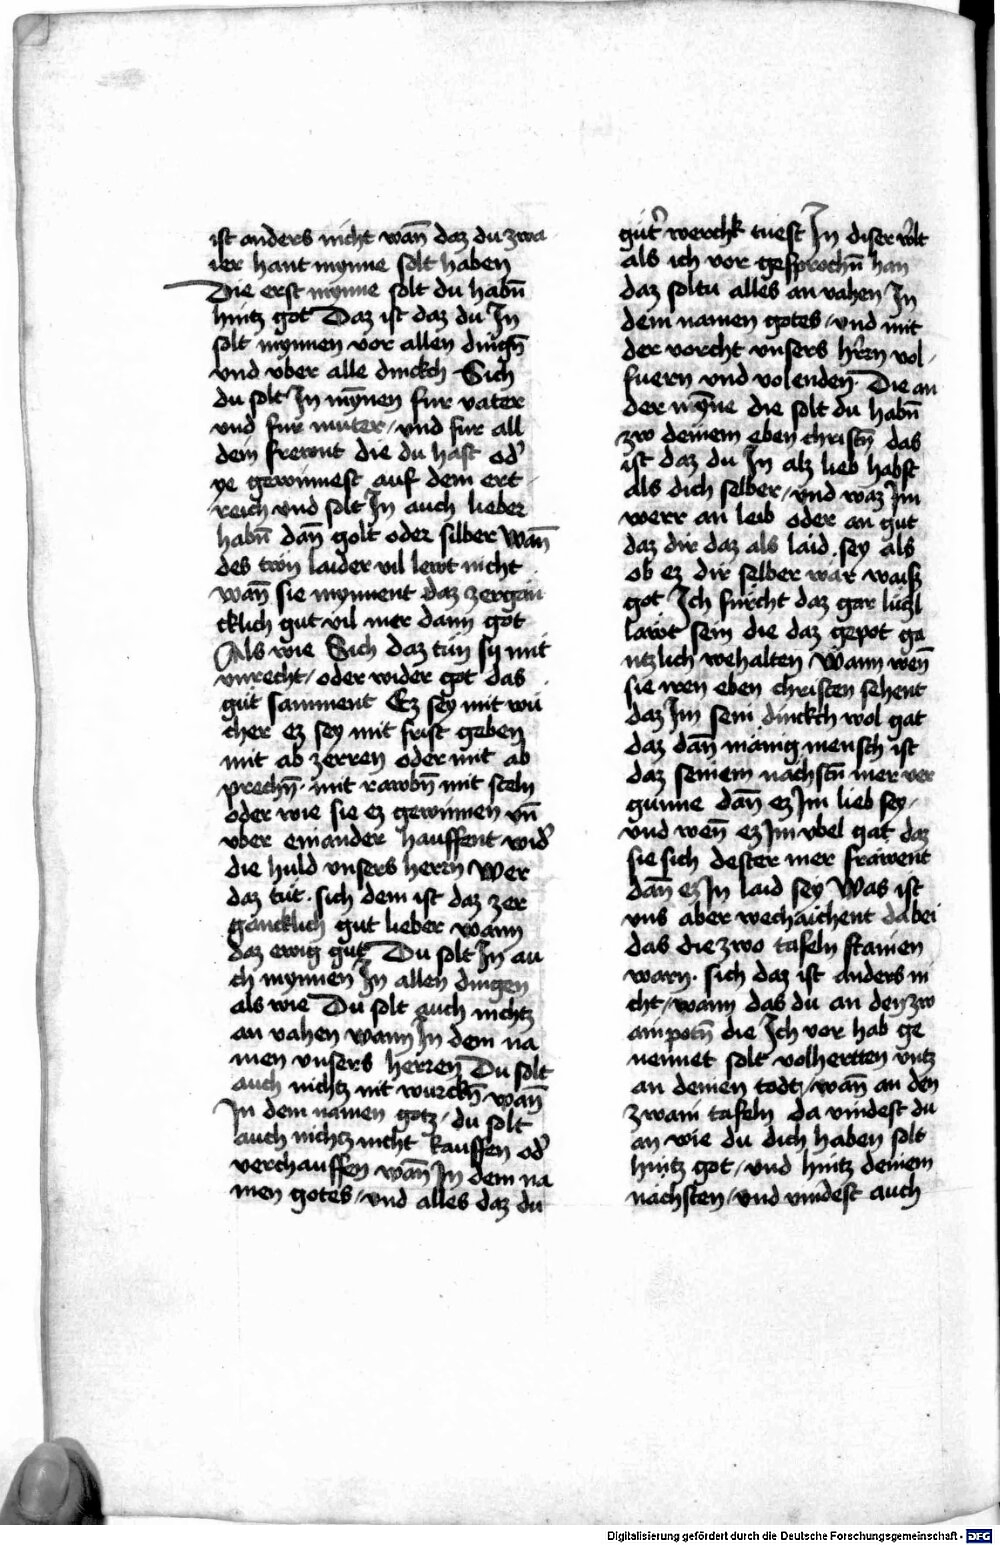 ist anders nicht wañ daz du zwa
ier hant mynne solt haben
Die erst mynne solt du habñ
hintz got Daz ist daz du In
solt mynnen vor allen dingñ
vnd vber alle dinckch Sich
du solt In mỹnen fur vater
vnd fur muter / vnd fur all
dein frewnt die du hast od'
ye gewinnest auf dem ert
reich vnd solt In auch lieber
habñ dañ golt oder silber Wañ
des tṽn laider vil lewt nicht
wañ sie mynnent daz zergan
cklich gut vil mer dann got
Als wie Sich daz tun sy mit
vnrecht / oder wider got das
gut samment Ez sey mit wu
cher ez sey mit frist geben
mit ab zerren oder mit ab
prechñ · mit rawbñ mit steln
oder wie sie ez gewinnen vñ
vber einander hauffent wid'
die huld vnsers herrn Wer
daz tut · sich dem ist daz zer
gancklich gut lieber wann
daz ewig gut Du solt In au
ch mynnen In allen dingen
als wie Du solt auch nichtz
an vahen wann In dem na
men vnsers herren Du solt
auch nichtz nit wurckñ wañ
In dem namen gotz / du solt
auch nichtz nicht kauffen od'
verchauffen wañ In dem na
men gotes / vnd alles daz du
gut' werchk tuest In diser w'lt
als ich vor gesprochñ han
daz soltu alles an vahen In
dem namen gotes / vnd mit
der vorcht vnsers h'rzn vol
fuern vnd volenden · Die an
der mỹne die solt du habñ
zw deinem eben christñ das
ist daz du In alz lieb habst
als dich selber / vnd waz Im
werr an leib oder an gut
daz dir daz als laid sey als
ob ez dir selber wär waiß
got Ich furcht daz gar lüczl
läwt sein die daz gepot ga
ntzlich wehalten / Wann weñ
sie iren eben christen sehent
daz Im sein dinckch wol gat
daz dañ mänig mensch ist
daz seinem nächstñ mer ver
gunne dañ ez Im lieb sey /
vnd weñ ez Im vbel gat daz
sie sich dester mer fräwent
dañ ez In laid sey Was ist
vns aber wechaichent da bei
das die zwo tafeln stainen
warn · sich daz ist anders ni
cht / wann das du an den zw
ain potñ die Ich vor hab ge
nennet solt volhertten vntz
an deinen todt / wañ an den
zwain tafeln da vindest du
an wie du dich haben solt
hintz got / vnd hintz deinem
nächsten / vnd vindest auch
Digitalisierung gefördert durch die Deutsche Forschungsgemeinschaft - DFG